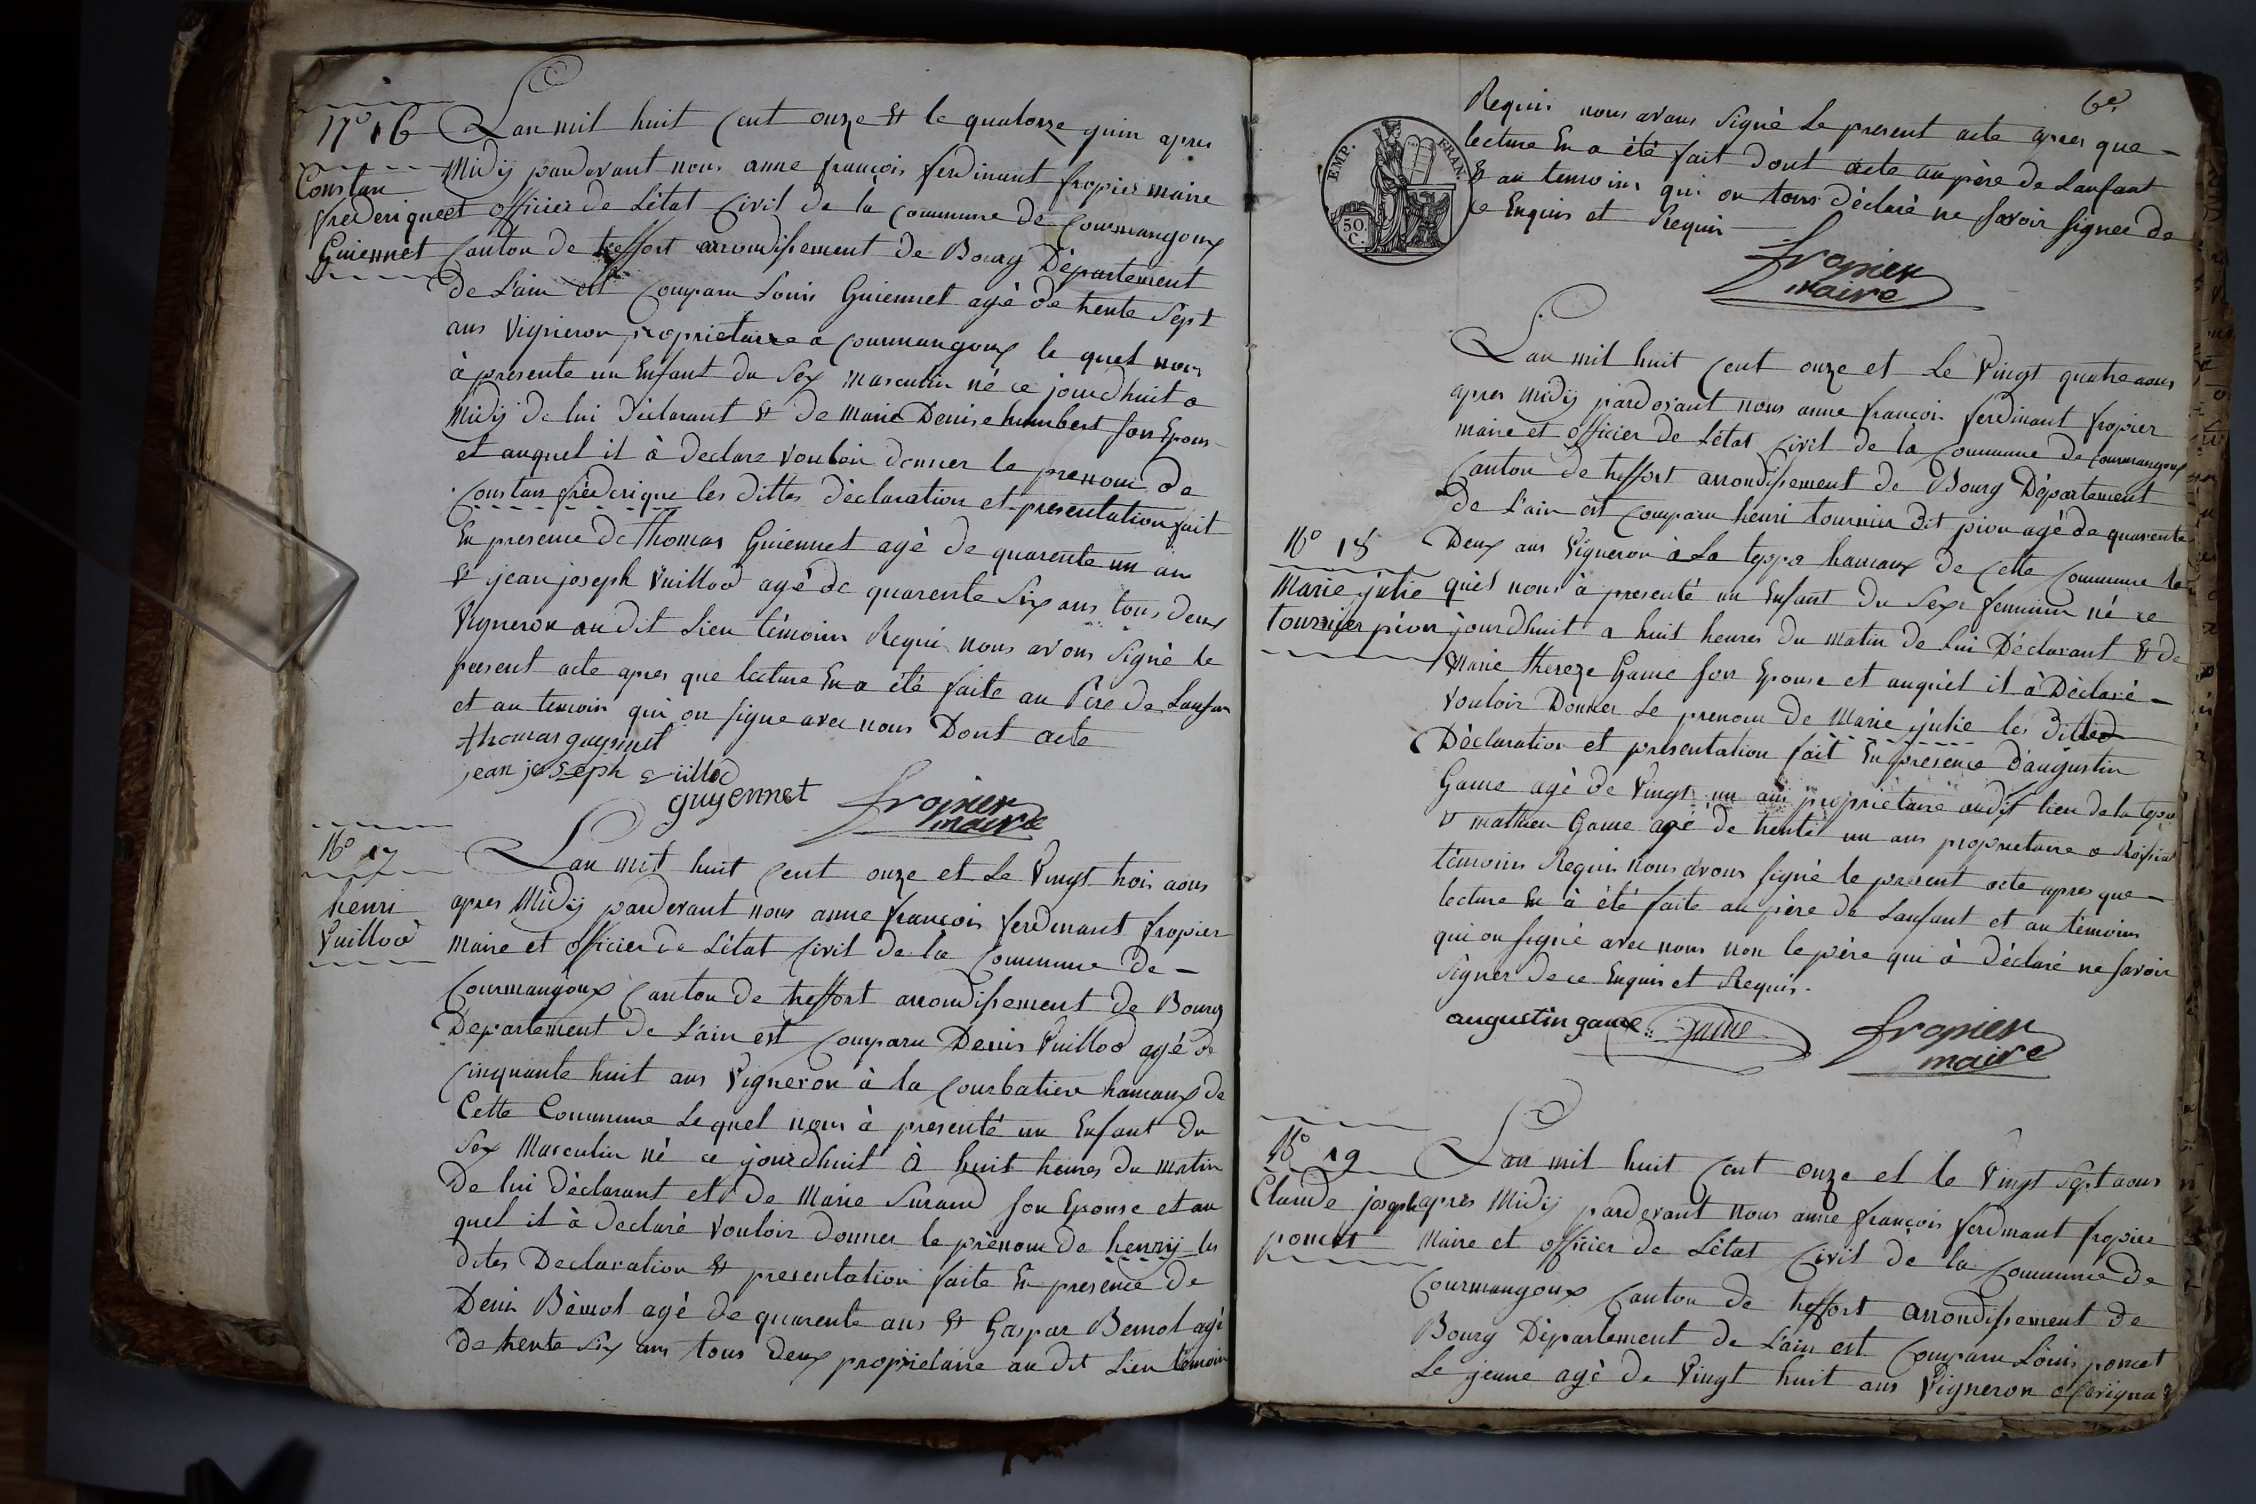 N° 16
Constan
frederique
Guiennet
Lan mil huit Cent onze et le quatorze juin apres
Midÿ pardevant nous anne françois ferdinant fropier maire
et officier de Létat Civil de là Commune de Courmangoux
Canton de treffort arrondissement de Bourg Département
de L'ain est Comparu Louis Guiennet agé de trente Sept
ans Vigneron propriétaire a Courmangoux le quel nous
à présenté un Enfant du Sex masculin né ce jourdhuit a
Midÿ de lui déclarant et de marie Denise humbert son Epous
et auquel il à declaré vouloir donner le prenom de
Constan fréderique les dittes déclaration et présentation fait
En presence de Thomas Guiennet agé de quarente un an
et jean joseph Vuillod agé de quarente Six ans tous deux
Vigneron au dit Lieu témoins Requi nous avons Signé le
present acte apres que lecture En a été faite au Père de Lanfan
et au temoin qui on signe avec nous Dont acte
thomas guyennet
jean joseph vuillod
guyennet fropier
maire
N° 17
henri
Vuillod
Lan mil huit Cent onze et Le Vingt trois aous
apres Midÿ pardevant nous anne françois ferdinant fropier
maire et officier de Létat Civil de la Commune de -
Courmangoux Canton de treffort arrondissement de Bourg
Departement de L'ain est Comparu Denis Vuillod agé de
Cinquante huit ans Vigneron à la Courbatiere hamaux de
Cette Commune Lequel nous à presenté un Enfant du
Sex Masculin né ce jourdhuit à huit heures du matin
De lui déclarant et de Marie Suraud son Epouse et au
quel il à declaré vouloir donner le prénom de henrÿ les
dites Declaration et presentation faite En présence de
Denis Bèmol agé de quarente ans et Gaspar Bemol agé
de trente Six ans tous deux propriétaire au dit Lieu témoin
6e
EMP. FRAN.
50. C.
Requis nous avons Signé Le present acte apres que -
lecture En a été fait dont acte au père de Lanfant
et au temoins qui on tous déclaré ne savoir signer de
ce Enquis et Requis
fropier
maire
N° 18
Marie julie
tournier pion
Lan mil huit Cent onze et Le Vingt quatre aous
apres midÿ pardevant nous anne françois ferdinant fropier
maire et officier de Létat Civil de là Commune de Courmangoux
Canton de treffort arrondissement de Bourg Département
de L'ain est Comparu henri tournier dit pion agé de quarente
Deux ans Vigneron à La teppe hamaux de Cette Commune le
quel nous à presenté un Enfant du Sexe feminin né ce
jourdhuit a huit heures du matin de lui Déclarant et de
Marie thereze Game son Epouse et auquel il à Déclaré -
Vouloir Donner Le prenom de Marie julie les dittes
Déclaration et présentation fait En presence d'augustin
Game agé de Vingt un ans propriétaire au dit lieu de la teppe
et mathieu Game agé de trente un ans proprietaire a Roissiat
témoins Requis nous avons signé le present acte apres que -
lecture En à été faite au père de Lanfant et au témoins
qui on signé avec nous non le père qui à déclaré ne savoir
signer de ce Enquis et Requis.
augustin game game fropier
maire
N° 19
Claude joseph
poncet
Lan mil huit Cent onze et le Vingt Sept aous
apres Midÿ pardevant nous anne françois ferdinant fropier
Maire et officier de Létat Civil de la Commune de
Courmangoux Canton de treffort arrondissement de
Bourg Département de L'ain est Comparu Louis poncet
Le jeune agé de Vingt huit ans Vigneron a